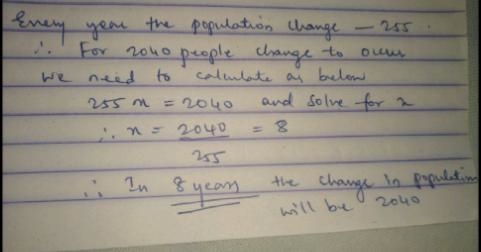 Every year the population change — 255.
∴ For 2040 people change to occur
we need to calculate as below
255 x = 2040 and solve for x
∴ x = 2040 = 8
255
∴ In 8 years the change in population
will be 2040